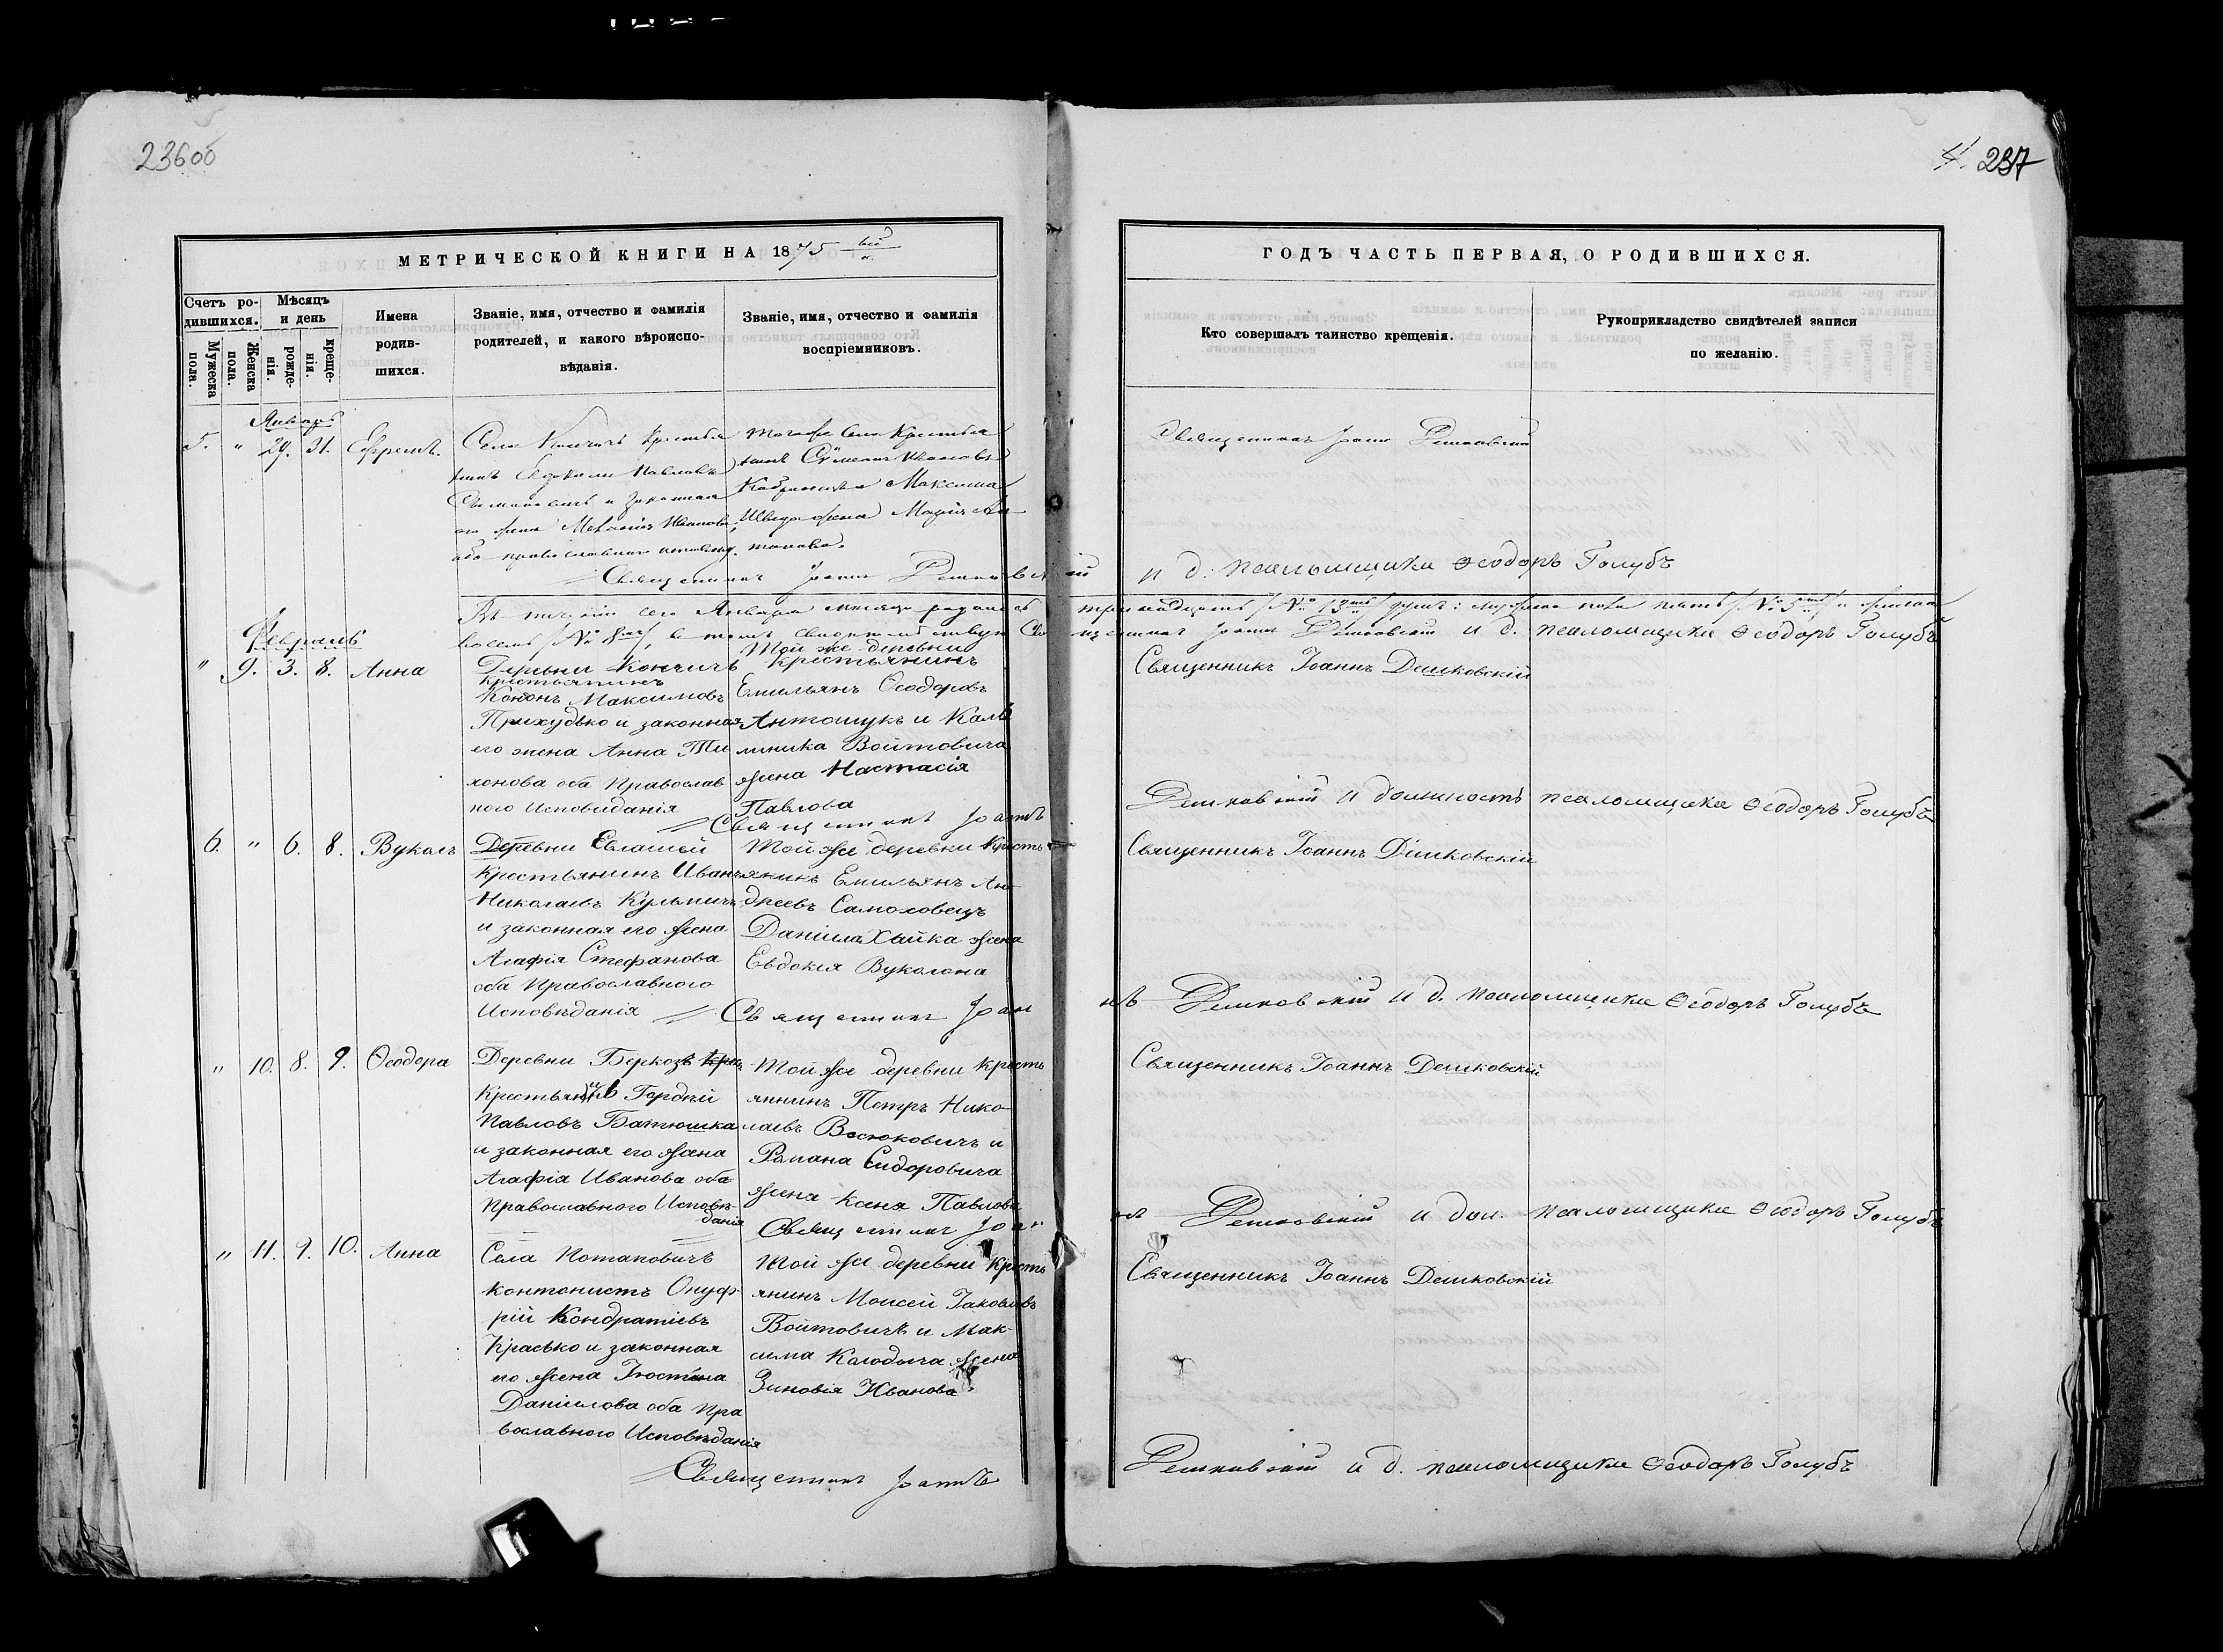 236об
4. 237
МЕТРИЧЕСКОЙ КНИГИ НА 1875 ый
ГОДЪ ЧАСТЬ ПЕРВАЯ, О РОДИВШИХСЯ.
Счетъ ро-
дившихся.
Мужеска
пола.
Женска
пола.
Мѣсяцъ
и день
рожде-
нія.
креще-
нія.
Имена
родив-
шихся.
Званіе, имя, отчество и фамилія
родителей, и какого вѣроиспо-
вѣданія.
Званіе, имя, отчество и фамилія
воспріемниковъ.
Кто совершалъ таинство крещенія.
Рукоприкладство свидѣтелей записи
по желанію.
Январь
5. " 29. 31. Ефремъ.
Села Крестья
нинъ Павловъ
и законная
его жена Иванова
оба православнаго
тогоже села Крестья
нинъ Ивановъ
Максима
Шведа жена Марія Ан-
тонова.
Священникъ Іоаннъ Дешковскій
Священникъ Іоаннъ Дешковскій
и д. псаломщика Ѳеодоръ Голубъ
Въ теченіи сего Января мѣсяца родилось тринадцать /№ 13/ душъ: мужеска пола пять /№ 5/ и женска
восемь /№ 8/, въ томъ свидѣтельствуемъ Священникъ Іоаннъ Дешковскій и д. псаломщика Ѳеодоръ Голубъ
Февраль
" 9. 3. 8. Анна
Деревни Кончичъ
крестьянинъ
Кононъ Максимовъ
Прихудько и законная
его жена Анна Ти
хонова оба Православ
ного Исповиданія
Той же деревни
крестьянинъ
Емильянъ Ѳеодоровъ
Антошукъ и Каль
линика Войтовича
жена Настасія
Павлова
Священникъ Іоаннъ
Священникъ Іоаннъ Дешковскій
Дешковскій и должность псаломщика Ѳеодоръ Голубъ
6. " 6. 8. Вуколъ
Деревни Евлашей
Крестьянинъ Иванъ
Николаевъ Кульничъ
и законная его жена
Агафія Стефанова
оба Православного
Исповѣданія
Той же деревни Кресть
янинъ Емильянъ Ан-
дреевъ Самоховецъ
Даніила Хвйка жена
Евдокія Вуколона
Священникъ Іоан
Священникъ Іоаннъ Дешковскій
нъ Дешковскій и д. псаломщика Ѳеодоръ Голубъ
" 10. 8. 9. Ѳеодора
Деревни Беркозъ
Крестьянинъ Гордѣй
Павловъ Батюшка
и законная его жена
Агафія Иванова оба
Православного Исповѣ
данія
Той же деревни Кресть
янинъ Петръ Нико-
лаевъ Восюковичъ и
Романа Сидоровича
жена Ксеня Павлова
Священникъ Іоан
Священникъ Іоаннъ Дешковскій
нъ Дешковскій и дол. псаломщика Ѳеодоръ Голубъ
" 11. 9. 10. Анна
Села Потаповичъ
контонистъ Онуф-
рій Кондратіевъ
Красько и законная
его жена Іюстина
Даниилова оба Пра
вославного Исповѣданія
Той же деревни Кресть
янинъ Моисей Іаковлевъ
Войтовичъ и Мак-
сима Колодыча жена
Зиновія Иванова
Священникъ Іоаннъ
Священникъ Іоаннъ Дешковскій
Дешковскій и д. псаломщика Ѳеодоръ Голубъ